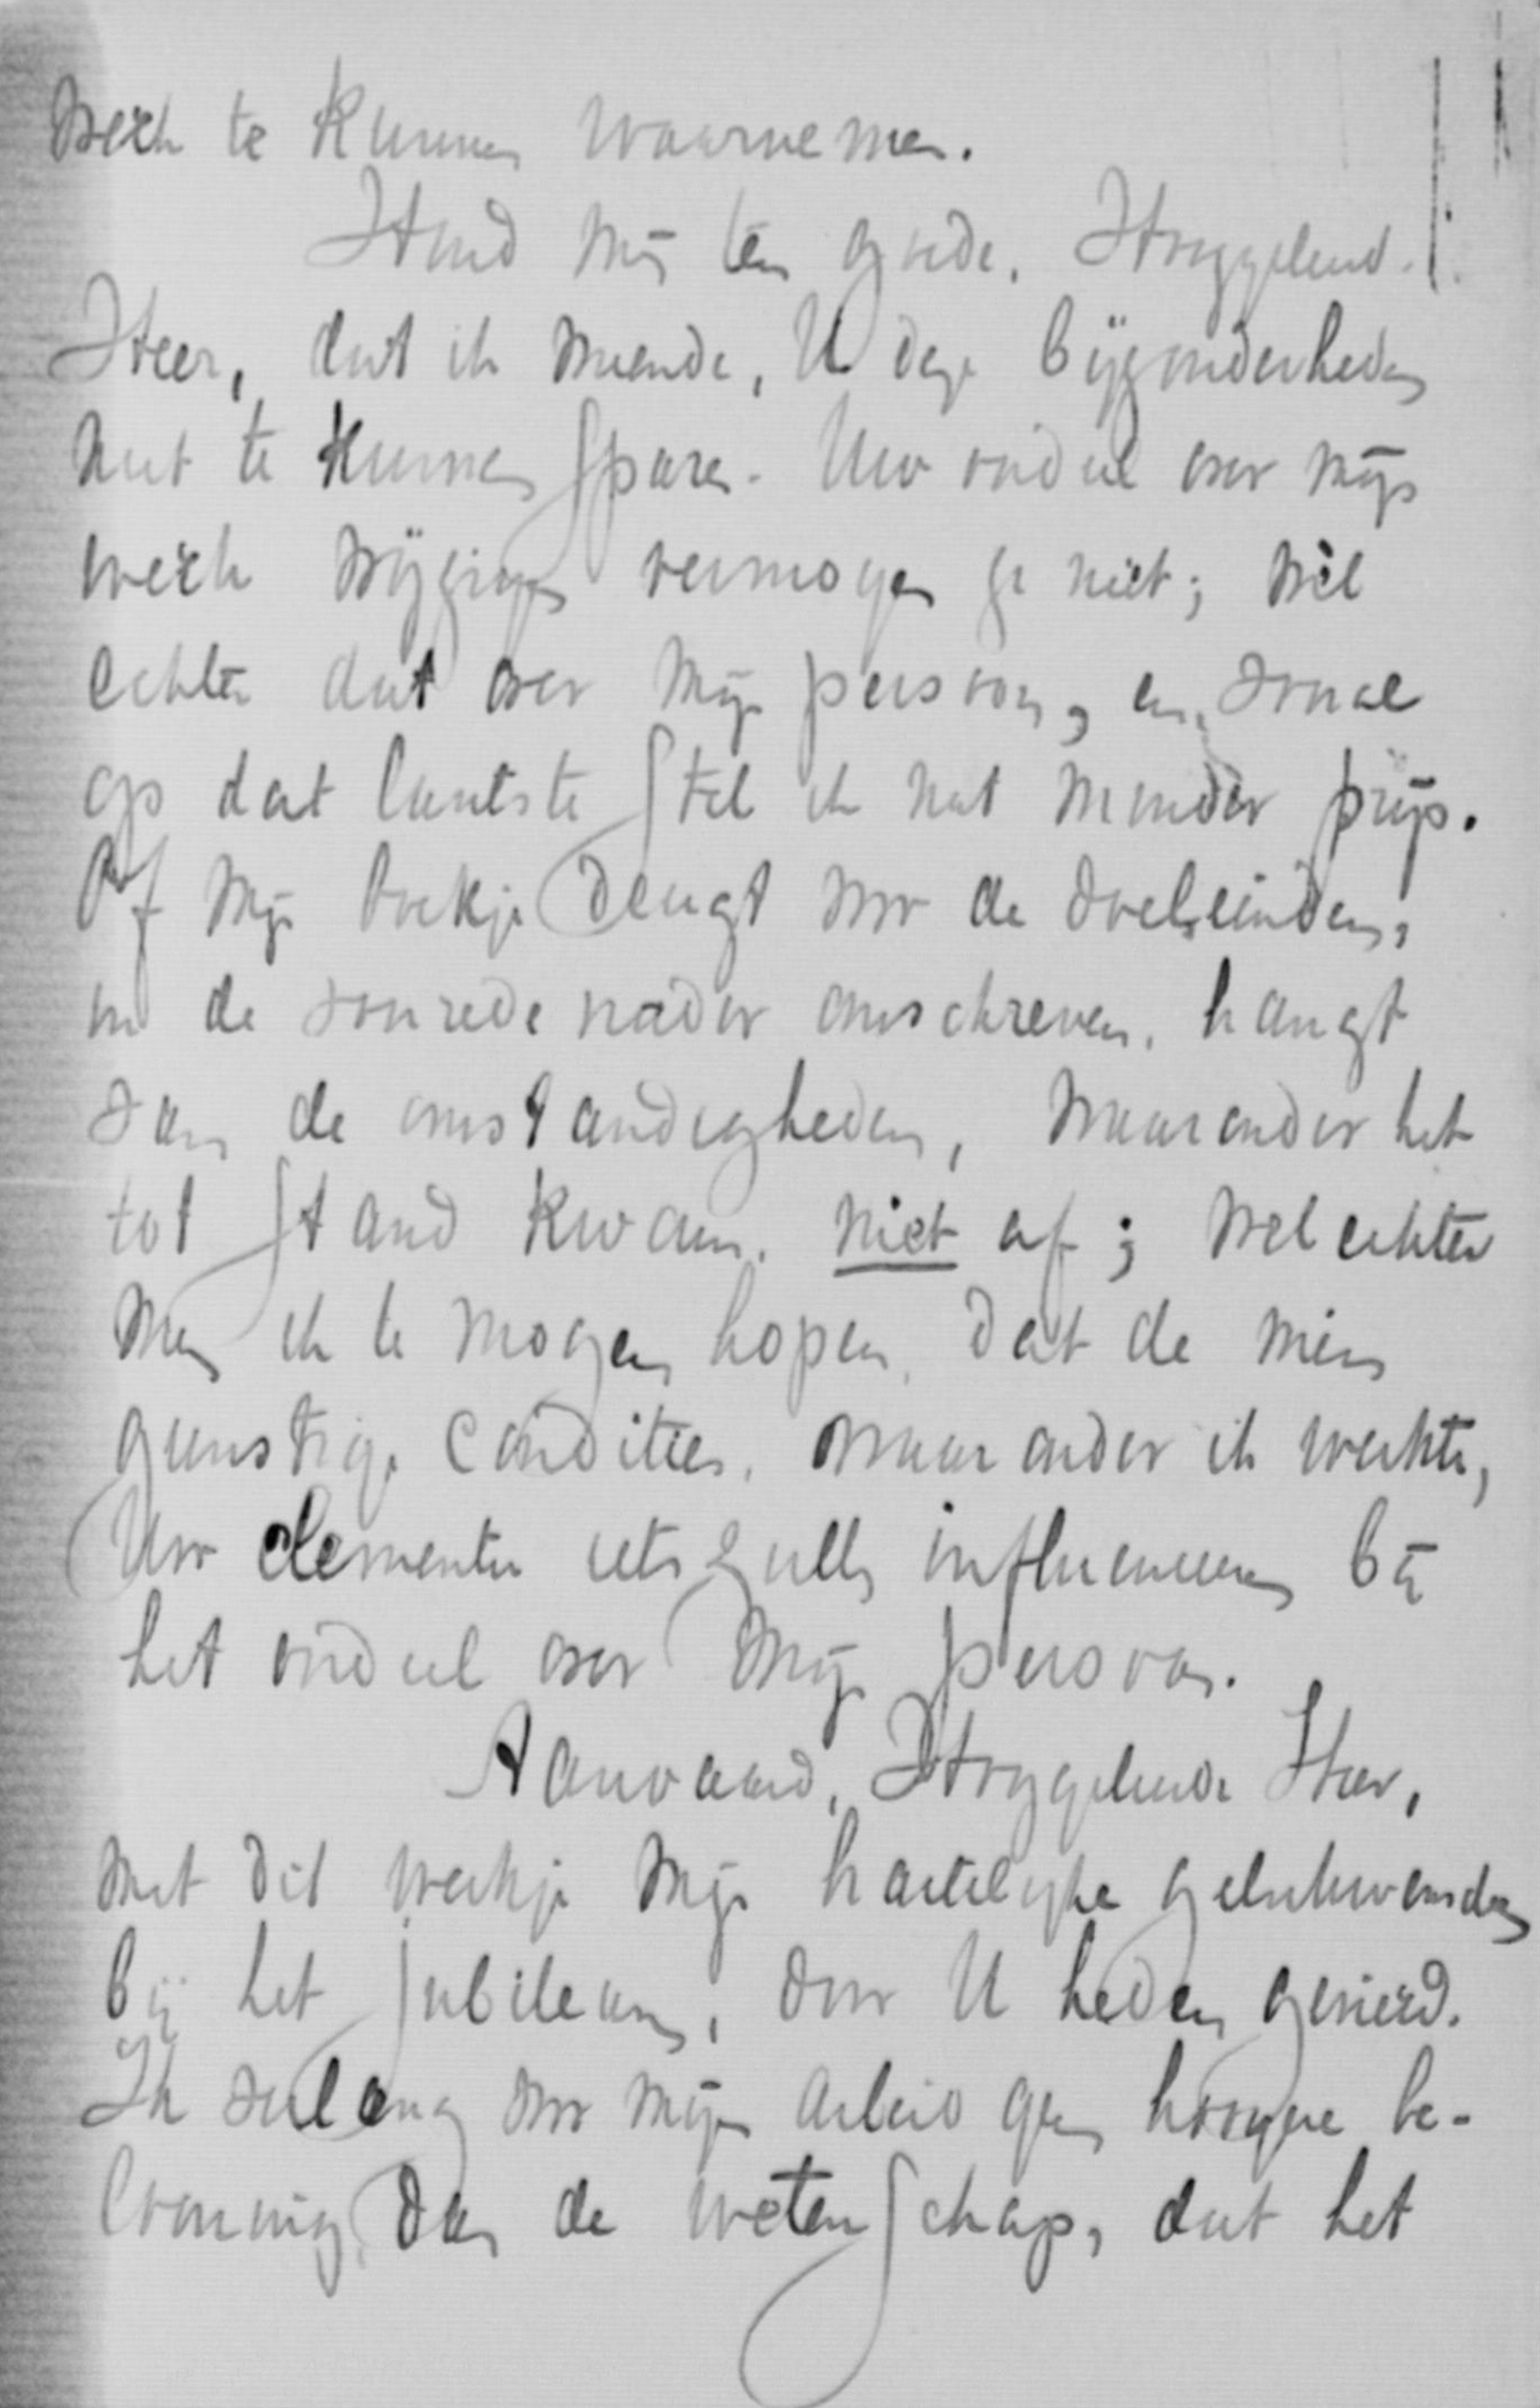 werk te kunnen waarnemen.
Houd mij ten goede, Hooggeleerd
Heer, dat ik meende, U deze bijzonderheden
niet te kunnen sparen. Uw oordeel over mijn
werk wijzigen vermogen ze niet; wèl
echter dat over mijn persoon, en vooral
op dat laatste stel ik niet minder prijs.
Of mijn boekje deugt voor de doeleinden,
in de voorrede nader omschreven, hangt
van de omstandigheden, waaronder het
tot stand kwam, niet af; wel echter
meen ik te mogen hopen, dat de min
gunstige condities, waaronder ik werkte,
Uw clementie iets zullen influenceeren bij
het oordeel over mijn persoon.
Aanvaard, Hooggeleerde Heer,
met dit werkje mijn hartelijke gelukwenschen
bij het jubileum, door U heden gevierd.
Ik verlang voor mijn arbeid geen hoogere be-
looning dan de wetenschap, dat het